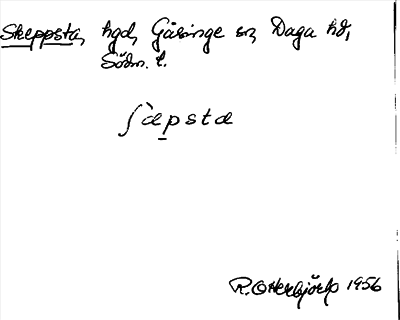 Skeppsta, hgd, Gåsinge sn, Daga hd,
Södm. l.
ʃàpsta
R. Otterbjörk 1956